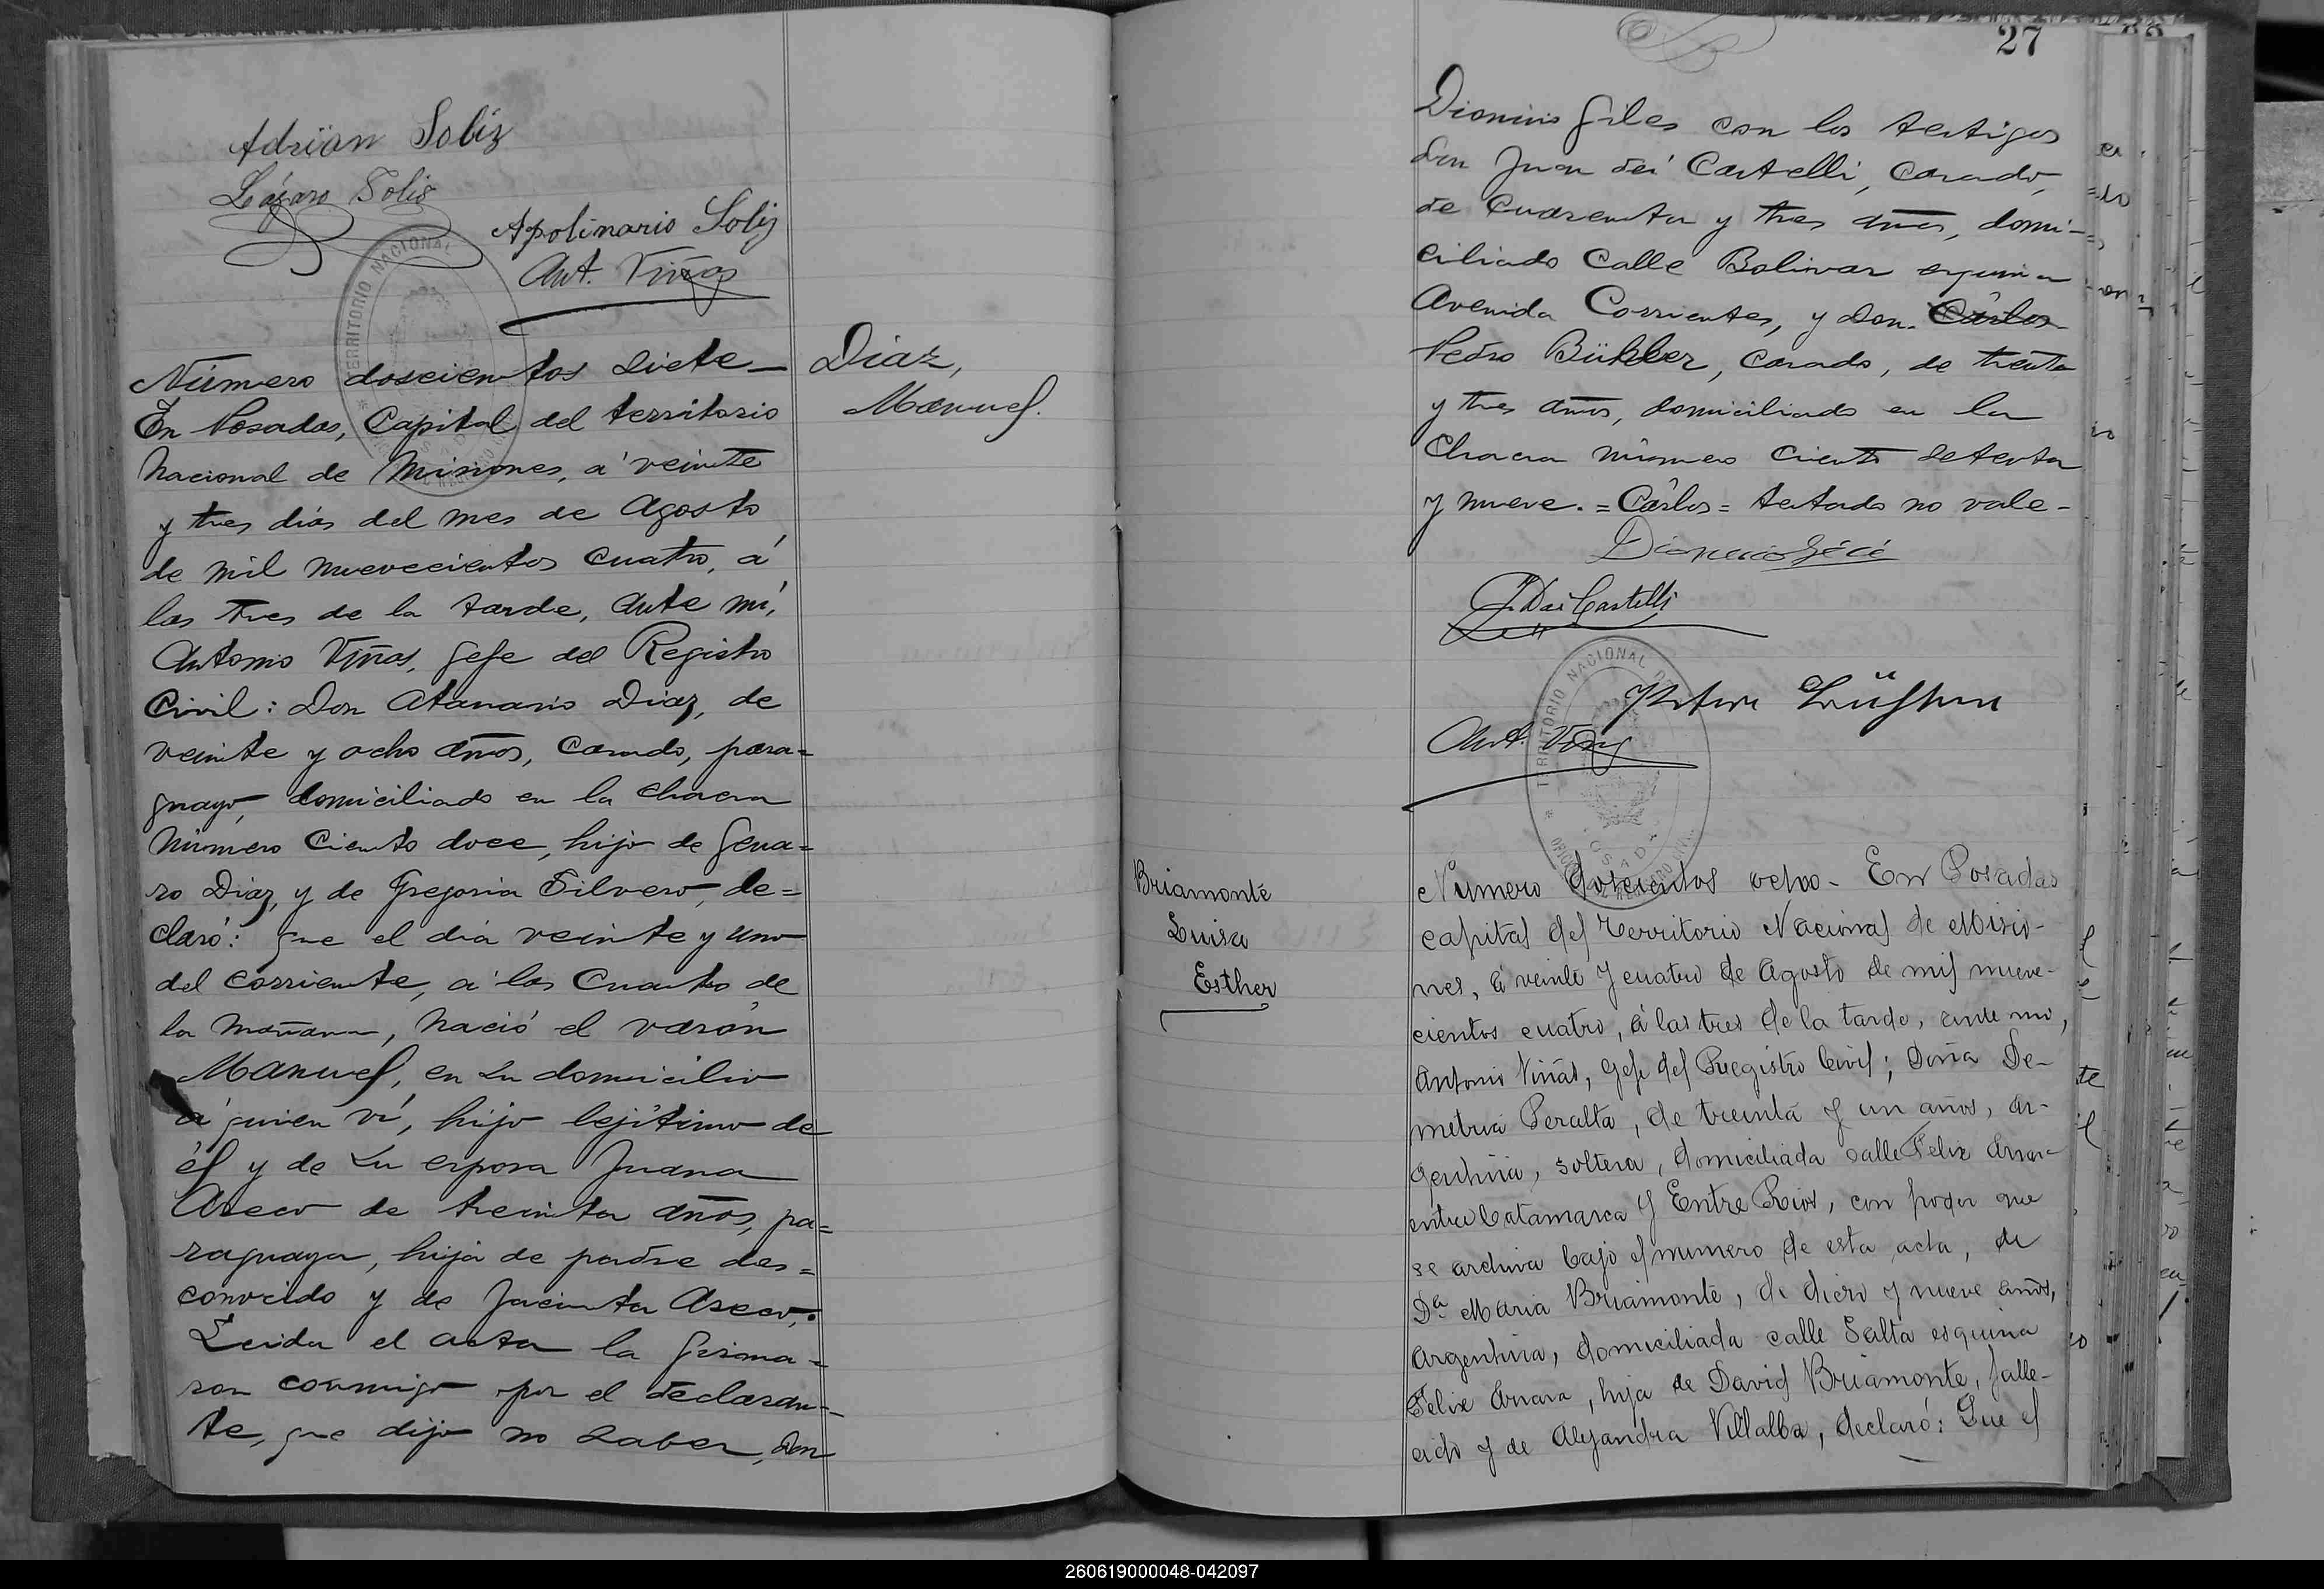 Adrian Soliz
Lázaro Solis
Apolinario Soliz
Ant. Viñas
TERRITORIO NACIONAL
Número doscientos siete—
Diaz,
Manuel.
En Posadas, Capital del territorio
Nacional de Misiones, á veinte
y tres dias del mes de Agosto
de mil nuevecientos cuatro, á
las tres de la tarde, ante mí,
Antonio Viñas, Gefe del Registro
Civil: Don Atanasio Diaz, de
veinte y ocho años, casado, para=
guayo, domiciliado en la chacra
número ciento doce, hijo de Gena=
ro Diaz, y de Gregoria Silvero, de=
claró: que el dia veinte y uno
del corriente, á las cuatro de
la mañana, nació el varón
Manuel, en su domicilio
á quien ví, hijo lejítimo de
él y de su esposa Juana
Aseco de treinta años, pa=
raguaya, hija de padre des=
conocido y de Jacinta Aseco,.
Leida el acta la firma=
ron conmigo por el declaran-
te, que dijo no saber, don
27
Dionisio Giles con los testigos
don Juan Dei Castelli, casado,
de cuarenta y tres años, domi-
ciliado calle Bolivar esquina
Avenida Corrientes, y don Cárlos
Pedro Bükler, casado, de treinta
y tres años, domiciliado en la
chacra número ciento setenta
y nueve. =Cárlos= testado no vale-
J. Dei Castelli
TERRITORIO NACIONAL
Ant. Viñas
POSADAS
Briamonte
Luisa
Esther
Número doscientos ocho- En Posadas
capital del Territorio Nacional de Misio-
nes, á veinte y cuatro de Agosto de mil nueve-
cientos cuatro, á las tres de la tarde, ante mi,
Antonio Viñas, gefe del Registro Civil; Doña De-
metria Peralta, de treinta y un años, ar-
gentina, soltera, domiciliada calle Felix Arrara
entre Catamarca y Entre Rios, con poder que
se archiva bajo el numero de esta acta, de
Dª Maria Briamonte, de diez y nueve años,
argentina, domiciliada calle Salta esquina
Felix Arrara, hija de David Briamonte, falle-
cido y de Alejandra Villalba, declaró: Que el
260619000048-042097